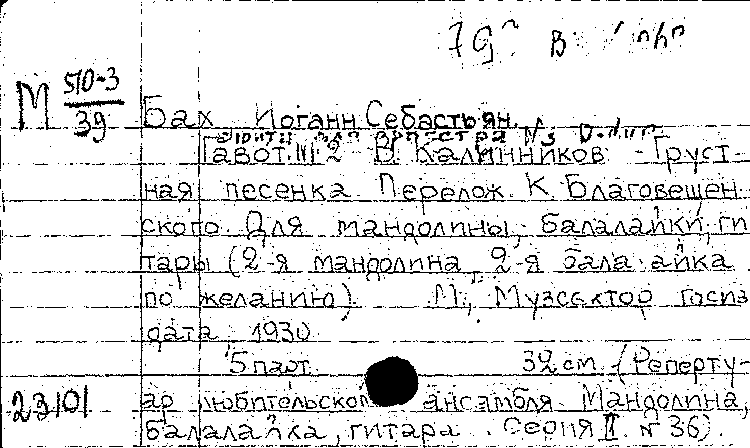 М 510-3
39
Бах Иоганн Себастьян.
Гавот. № 2 В. Калинников - Груст-
ная песенка. Перелож. К. Благовещен
ского. Для мандолины, балалайки, ги
тары (2-я мандолина, 2-я балалайка
по желанию) М., Музсектор Госиз
дата, 1930
5 парт. 32 см. (Реперту-
23101 ар любительского ансамбля. Мандолина,
балалайка, гитара. Серия II № 36).